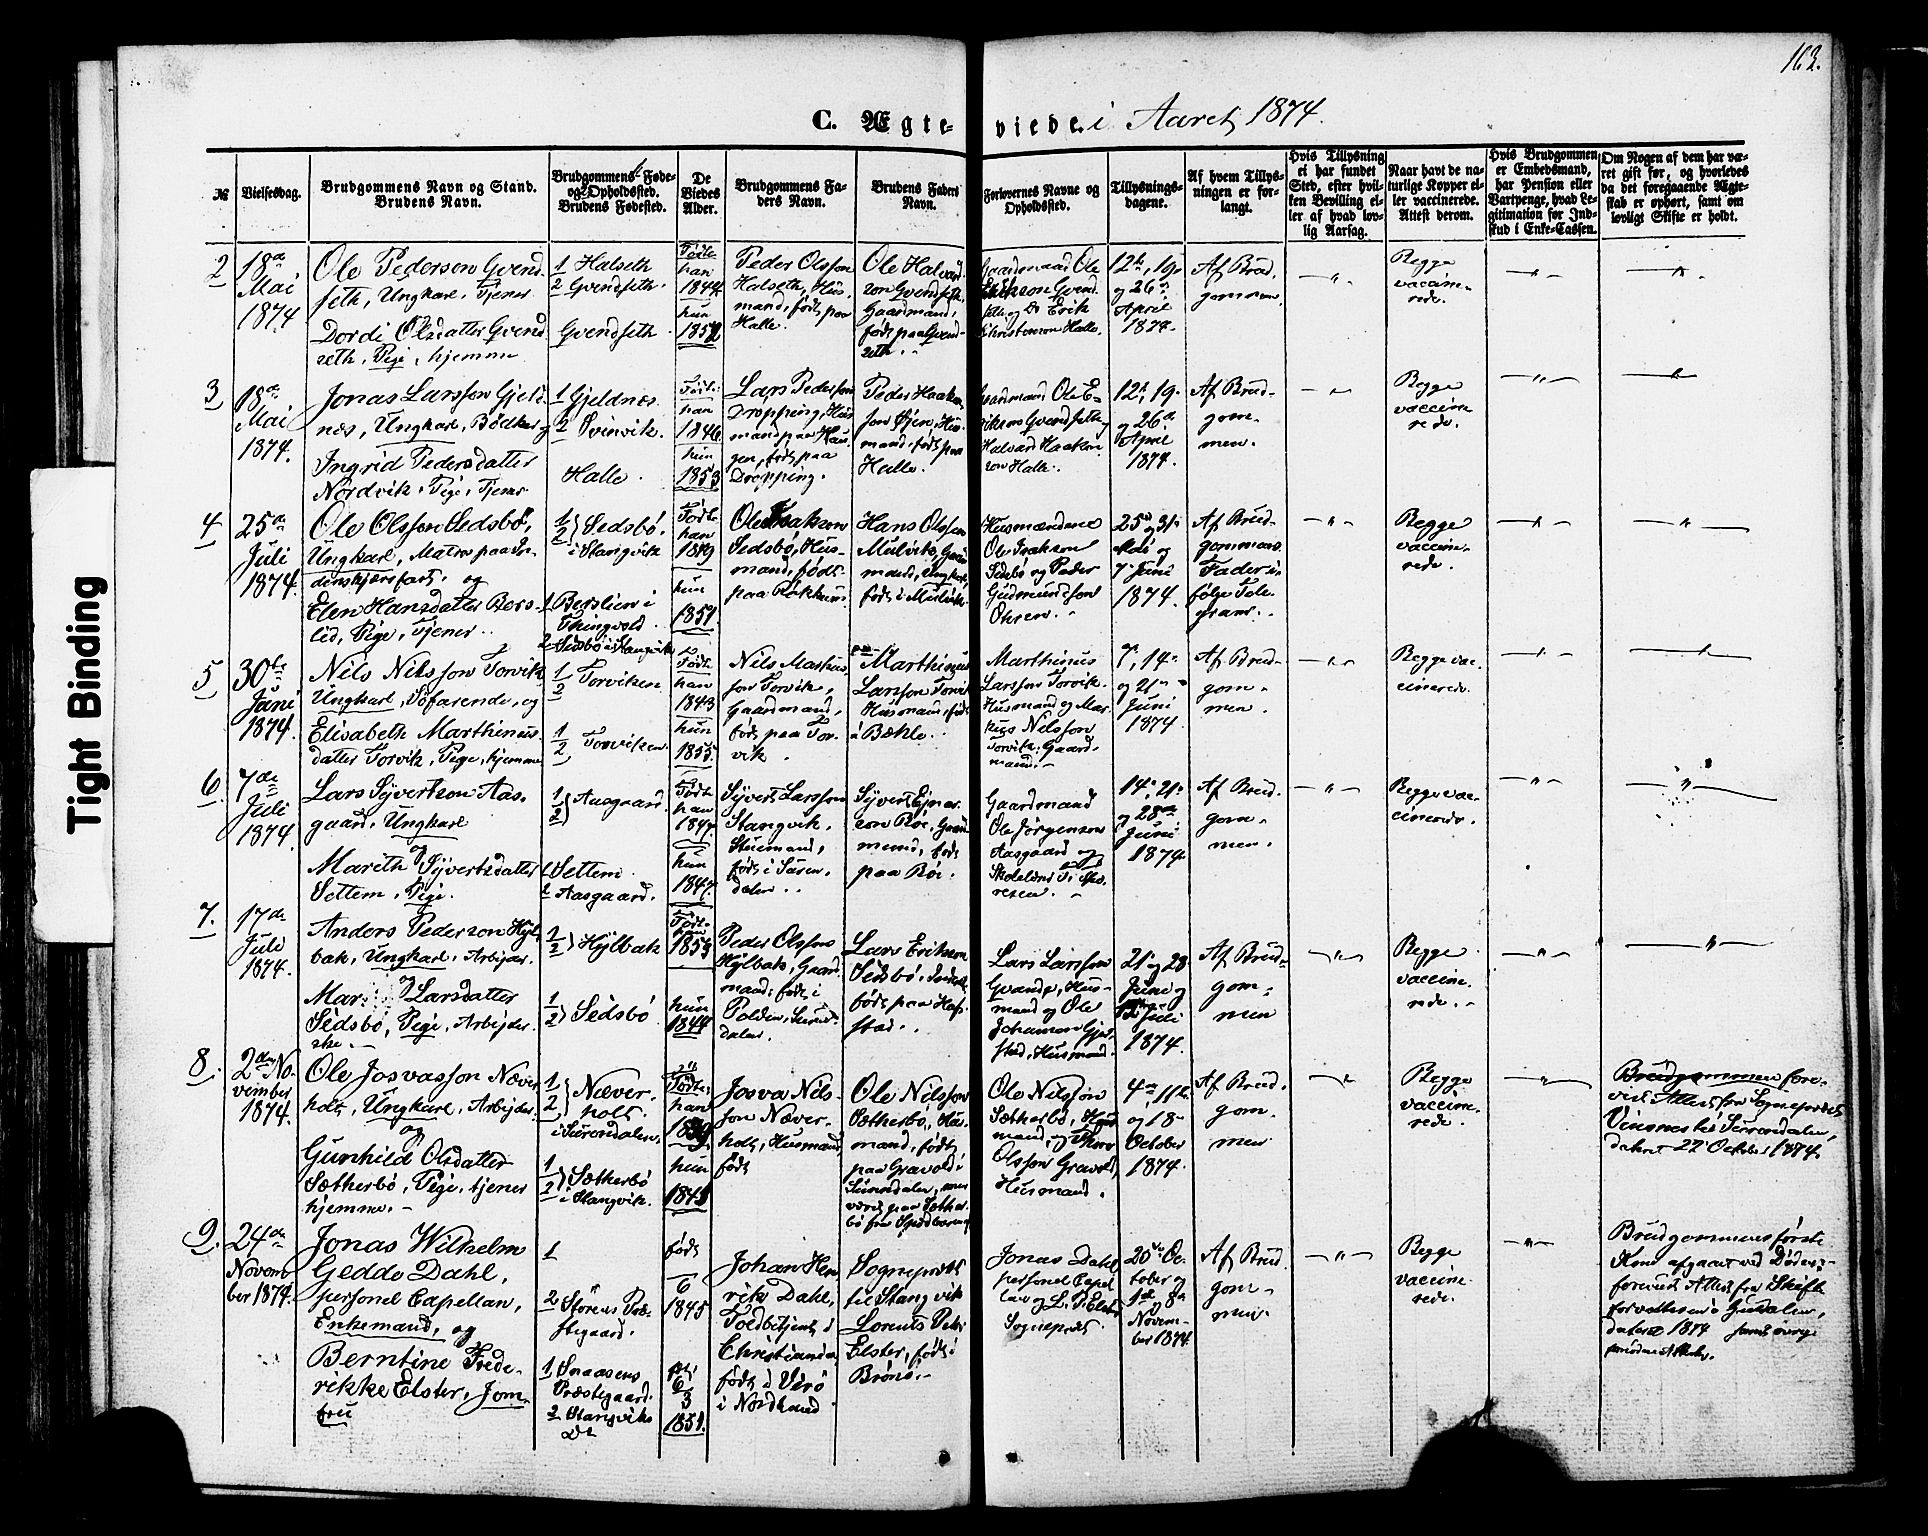 163.
C. Ægte- viede. i Aaret 1874.
Tight Binding
№
Vielsesdag.
Brudgommens Navn og Stand.
Brudens Navn.
Brudgommens Føde-
og Opholdssted.
Brudens Fødested.
De
Viedes
Alder.
Brudgommens Fa-
ders Navn.
Brudens Faders
Navn.
Forlovernes Navne og
Opholdssted.
Tillysnings-
dagene.
Af hvem Tillys-
ningen er for-
langt.
Hvis Tillysning
ei har fundet
Sted, efter hvil-
ken Bevilling el-
ler af hvad lov-
lig Aarsag.
Naar havt de na-
turlige Kopper el-
ler vaccinerede.
Attest derom.
Hvis Brudgommen
er Embedsmand,
har Pension eller
Vartpenge, hvad Le-
gitimation for Ind-
skud i Enke-Cassen.
Om Nogen af dem har væ-
ret gift før, og hvorledes
da det foregaaende Ægte-
skab er ophørt, samt om
lovligt Skifte er holdt.
2
18de
Mai
1874
Ole Pederson Gvend-
seth, Ungkarl, Tjener
og
Dordi Olsdatter Gvend
seth, Pige, hjemme
1 Halseth
2 Gvendseth.
Gvendseth
Fødte
han
1844
hun
1852
Peder Olsson
Halseth, Hus-
mand, født paa
Halle.
Ole Halvard-
son Gvendseth,
Gaardmand,
født paa Gvend-
seth.
Gaardmand Ole
Erikson Gvend-
seth og Do Erik
Christenson Halle.
12te, 19.
og 26de
April
1874.
Af Brud-
gommen.
Begge
vaccine-
rede.
3
18de
Mai
1874.
Jonas Larsson Gjeld-
næs, Ungkarl, Bødker og
Ingrid Pedersdatter
Nordvik, Pige, Tjener
1 Gjeldnæs
2 Svinvik.
Halle.
Født:
han
1846
hun
1853
Lars Pederson
Dropping, Hus
mand paa Hau-
gen, født paa
Dropping.
Peder Haakon-
son Øjen, Hus-
mand, født paa
Halle.
Gaardmand Ole E-
rikson Gvendseth og
Halvard Haakon-
son Halle.
12te, 19.
og 26de
April
1874.
Af Brud-
gom-
men.
Begge
vaccine
rede.
4
25de
Juli
1874.
Ole Olsson Sedsbø,
Ungkarl, Matros paa In-
denskjærsfart, og
Elen Hansdatter Bers-
lid, Pige, Tjener.
1
2 Sedsbø.
i Stangvik
1 Berslien i
Thingvold
2 Sedsbø i Stangvik
Fødte
han
1849
hun
1851.
Ole Isakson
Sedsbø, Hus-
mand, født
paa Røkkum.
Hans Olsson
Mulvik, Gaard-
mand, Ungkarl,
født i Mulvik.
Husmændene
Ole Isakson
Sedsbø og Peder
Gudmundson
Ohren.
25de, 31te
Mai og
7de Juni
1874.
Af Brud-
gommens
Fader i-
følge Tele-
gram.
Begge
vaccine-
rede.
5
30te
Juni
1874.
Nils Nilsson Torvik,
Ungkarl, Søfarende, og
Elisabeth Marthinus-
datter Torvik, Pige, hjemme
1
2 Torviken
1
2 Torviken
Født
han
1843
hun
1855.
Nils Markus
son Torvik,
Gaardmand,
født paa Tor-
vik.
Marthinus
Larsson Torvik
Husmand, født
i Bøkle.
Marthinus
Larsson Torvik.
Husmand og Mar-
kus Nilsson
Torvik, Gaard-
mand.
7de, 14de
og 21de
Juni
1874.
Af Brud-
gom-
men.
Begge vac-
cinerede.
6.
7de
Juli
1874.
Lars Syvertson Aas-
gaard, Ungkarl
og
Marith Syvertsdatter
Settem, Pige.
1
2 Aasgaard
1 Settem
2 Aasgaard.
Født
han
1847
hun
1847.
Syvert Larsson
Stangvik,
Stuemand,
født i Suren-
dalen.
Syvert Ejnar-
son Røe, Gaard-
mand, født
paa Røe.
Gaardmand
Ole Jørgenson
Aasgaard og
14de, 21de
og 28de
Juni
1874.
Af Brud-
gom-
men.
Begge vac-
cinerede.
7.
17de
Juli
1874.
Anders Pederson Hyl-
bak, Ungkarl, Arbejder
og
Larsdatter
Sedsbø, Pige, Arbejder-
ske.
1
2 Hylbak
1
2 Sedsbø
Født
1853
hun
1844
Peder Olsson
Hylbak, Gaard-
mand, født i
Suren-
dalen
Lars Erikson
Sedsbø,
født paa Haf-
stad.
Lars Larsson
Hus-
mand og Ole
Johanson
Husmand.
21de og 28
Juni og
Juli
1874.
Af Brud-
gom-
men
Begge
vaccine-
rede.
8.
2den No-
vember
1874.
Ole Josvasson Næver-
holt, Ungkarl, Arbejder
og
Gunhild Olsdatter
Sætherbø, Pige, tjener
hjemme.
1
2 Næver-
holt
i Surendalen.
1
2 Sætherbø
i Stangvik.
Fødte:
han
hun
Josva Nils-
son Næver-
holt, Husmand
født
Ole Nilsson
Sætherbø, Hus-
mand, født
paa Gravold i
Surendalen,
Ole Nilsson
Sætherbø, Hus
mand, og Thore
Olsson Gravold,
Husmand.
4de, 11te
og 18
October
1874.
Af Brud-
gom-
men
Begge
vaccine-
rede.
Brudgommen fore-
vist Attest fra Sognepræst
i Surendalen,
dateret 22 October 1874.
9.
24de
Novem-
ber 1874.
Jonas Wilhelm
Gedde Dahl,
personel Capellan,
Enkemand, og
Berntine Frede-
rikke Elster, Jom-
fru
1
2 Størens Præ-
stegaard.
1 Snaasens
Præstegaard.
2 Stangviks
Do
født
6
1845
6
3
1851.
Johan Hen-
rik Dahl,
Toldbetjent i
Christiansund,
født i Verø
i Nordland
Sognepræst
til Stangvik
Lorents Petr.
Elster, født i
Jonas Dahl
personel Capel-
lan og L. P. Elster
Sognepræst.
25de Oc-
tober og
1ste og 8de
Novem-
ber 1874.
Af Brud-
gom-
men.
Begge
vaccine-
rede.
Brudgommens første
Kone afgaaet ved Døden,
forevist Attest fra Skifte
forvalteren i
dateret 1874